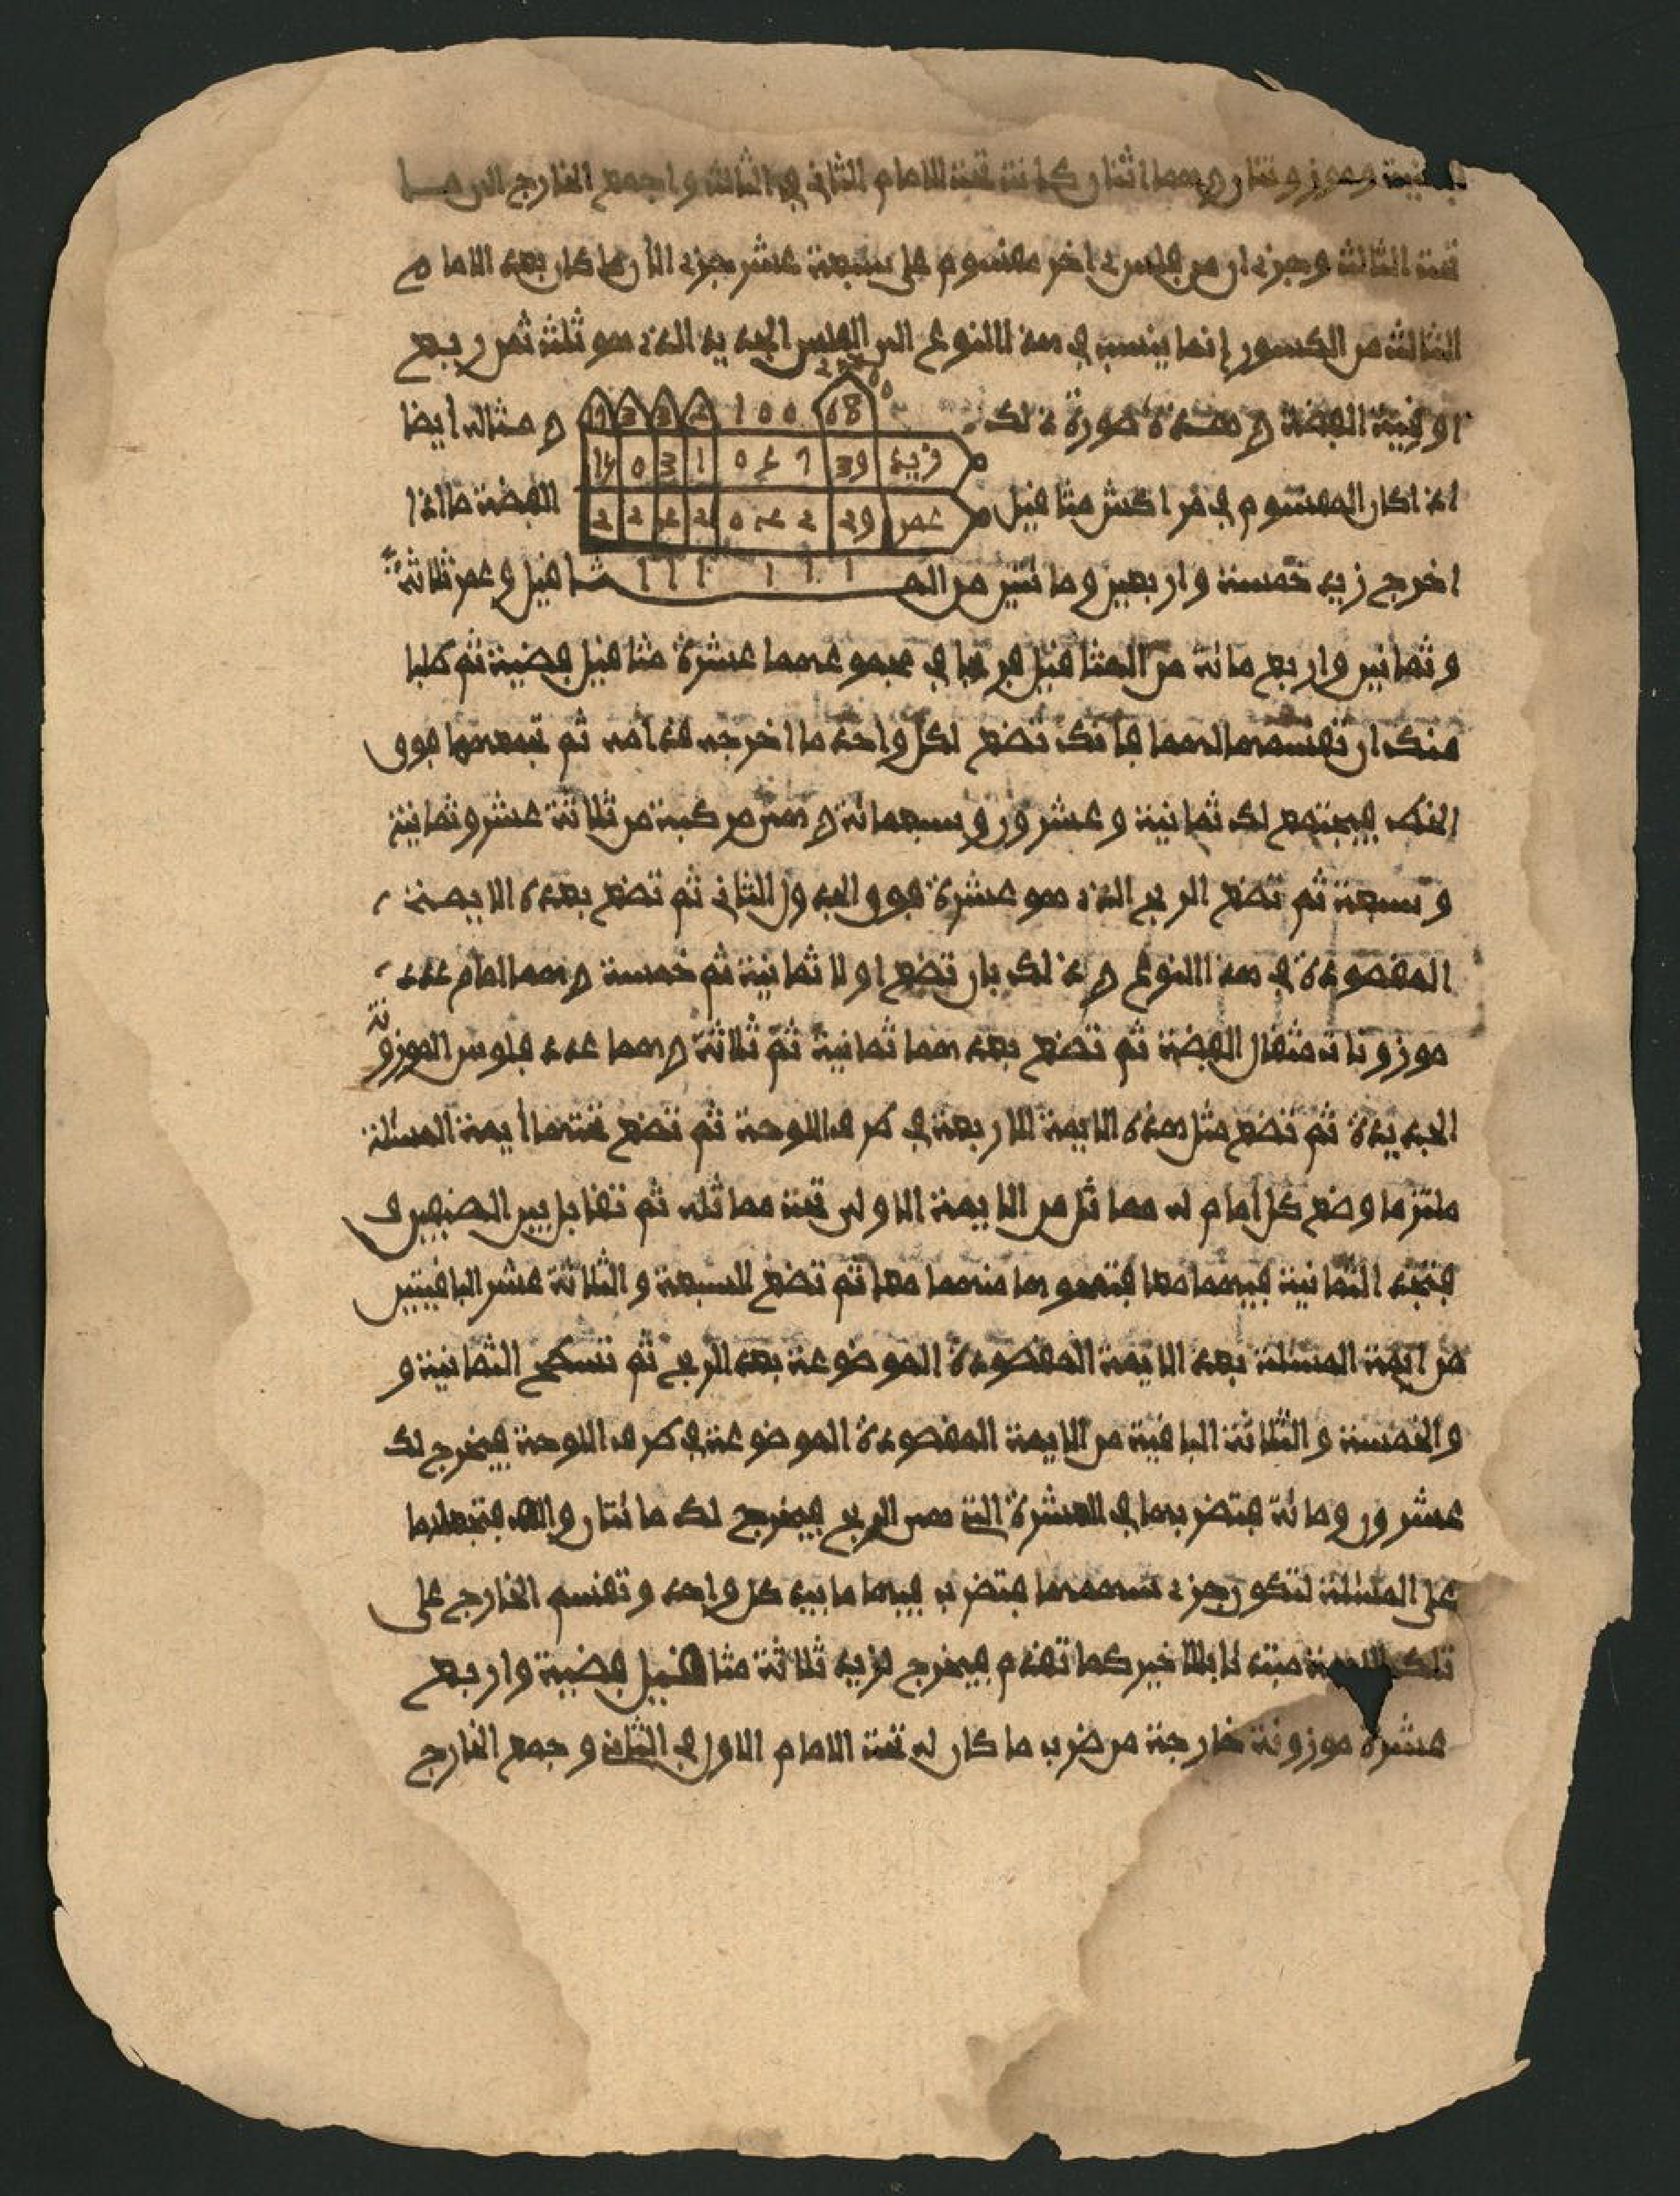 وموزونتان وهما اثنان كانتا تحت الامام الثاني في الثالث واجمع الخارج الى ما
تحت الثالث وجزءان من فلس اخر مقسوم على سبعة عشر جزء الان ما كان بعد الامام
الثالث من الكسور إنما ينسب في هذا النوع الى الفلس الجديد الذي هو ثلث ثمن ربع
اوقية الفضة وهذه صورة ذلك ومثاله ايضا
اذا كان المقسوم في مراكش مثاقيل الفضة ما اذا
زيد
عمر
اخرج زيد خمسة واربعين ومائتين من المثاقيل وعمر ثلاثة
وثمانين واربع مائة من المثاقيل فربحا في مجموعهما عشرة مثاقيل فضية ثم طلبا
منك ان تقسمه لهما فانك تضع لكل واحد ما اخرجه قدامه ثم تجمعهما فوق
الخط فيجتمع لك ثمانية وعشرون وسبعمائة وهي مركبة من ثلاثة عشر وثمانية
وسبعة ثم تضع الربح الذي هو عشرة فوق الجدول الثاني ثم تضع بعده الايمة
المقصودة في هذا النوع وذلك بان تضع اولا ثمانية ثم خمسة وهما امام عدد
موزونات مثقال الفضة ثم تضع بعدهما ثمانية ثم ثلاثة وهما عدد فلوس الموزونة
الجديدة ثم تضع مثل هذه الايمة الاربعة في طرف اللوحة ثم تضع تحتها أيمة المسئلة
ملتزما وضع كل امام له مماثل من الايمة الاولى تحت مماثله ثم تقابل بين الصفين
فتجد الثمانية فيهما معا فتمحوها منهما معا ثم تضع السبعة والثلاثة عشر الباقيتين
من ايمة المسئلة بعد الايمة المقصودة الموضوعة بعد الربح ثم تسطح الثمانية و
والخمسة والثلاثة الباقية من الايمة المقصودة الموضوعة في طرف اللوحة فيخرج لك
عشرون ومائة فتضربها في العشرة التي هي الربح فيخرج لك مائتان والف فتجعلها
على المسئلة لتكون جزء سهمها فتضرب فيها ما بيد كل واحد وتقسم الخارج على
تلك الايمة مبتدئا بالاخير كما تقدم فيخرج لزيد ثلاثة مثاقيل فضية واربع
عشرة موزونة خارجة من ضرب ما كان له تحت الامام الاول في الثاني وجمع الخارج